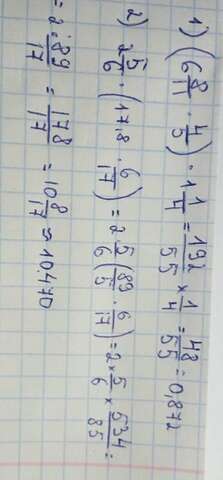 1) (6 8/11 · 4/5) · 1 1/4 = 192/55 × 1/4 = 48/55 = 0,872
2) 2 5/6 · (17,8 · 6/17) = 2 5/6 (89/5 · 6/17) = 2 × 5/6 × 534/85 =
= 2 · 89/17 = 178/17 = 10 8/17 ≈ 10.470